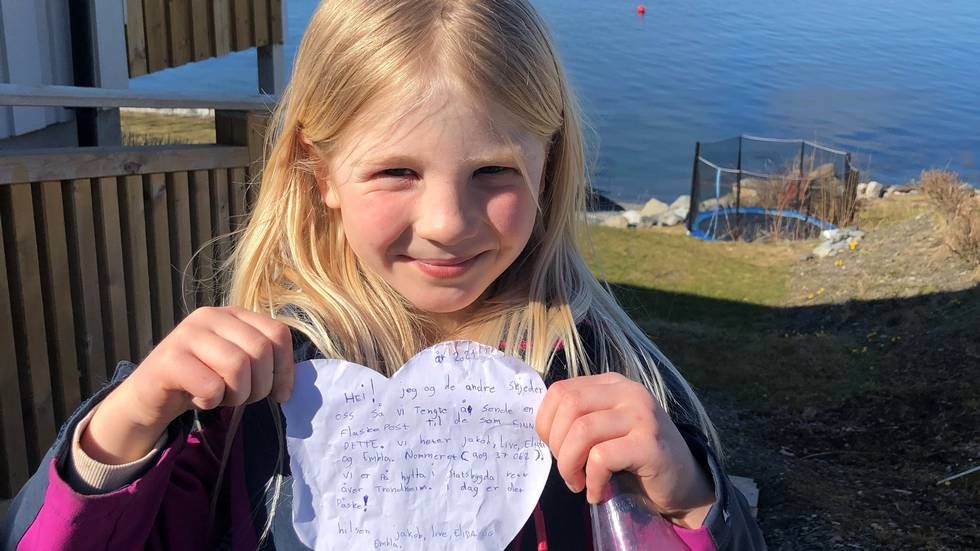 år 2021
HEI! jeg og de andre skjeder
oss så vi Tengte å sende en
flaskepost til de som FINN
DETTE. vi heter jakob, Live, Elida
og Embla. Nommeret (909 37 062).
vi er på hytta i Statsbygda rett
åver Trondheim. I dag er det
Påske!
hilsen jakob, live, ELIDA og
Embla.